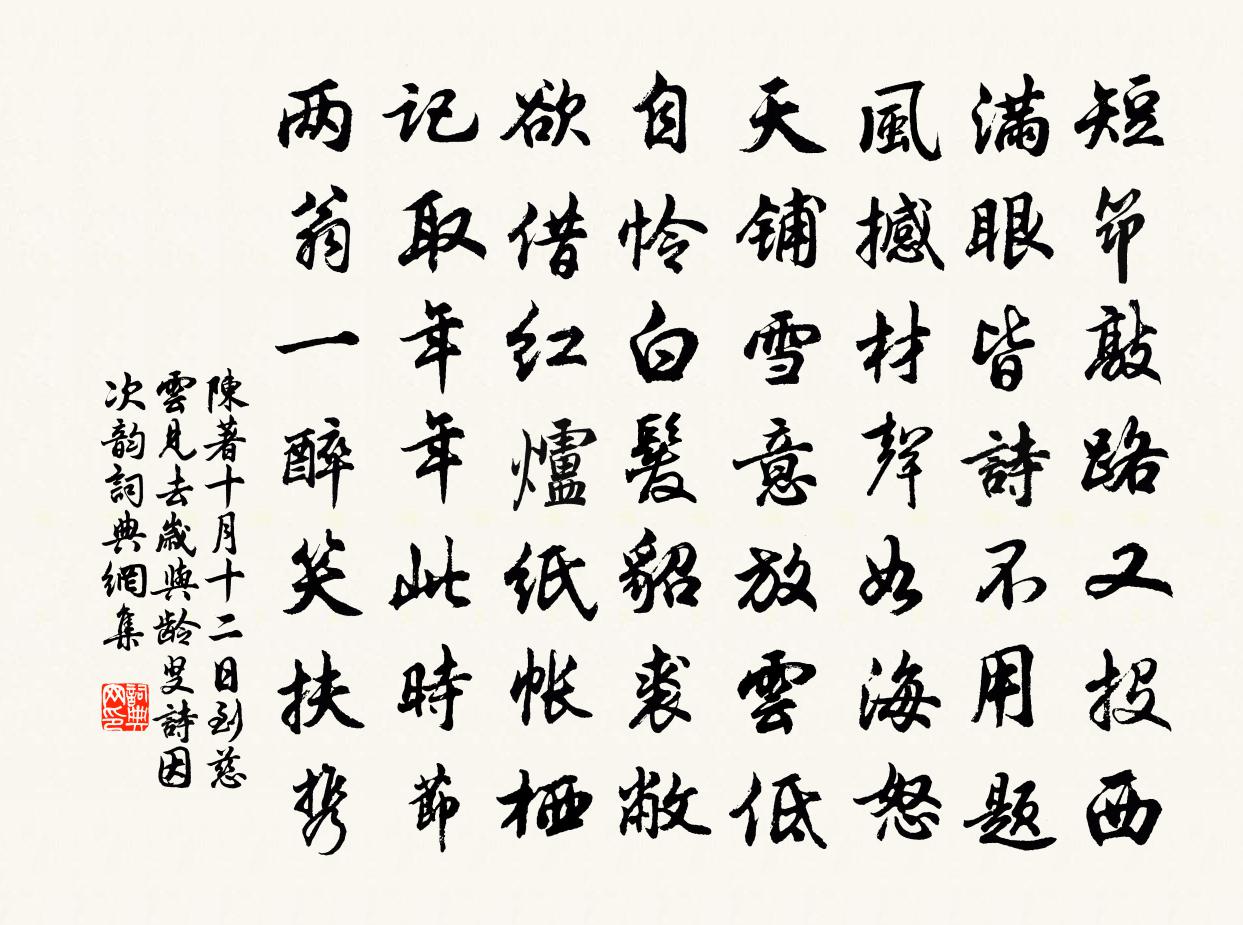 短筇敲路又投西
滿眼皆詩不用题
風撼材聲如海怒
天铺雪意放雲低
自怜白髮貂裘敝
欲借红爐纸帐栖
記取年年此時節
两翁一醉笑扶携
陳著十月十二日到慈
雲見去歲與龄叟詩因
次韵詞典網集
詞典
网印